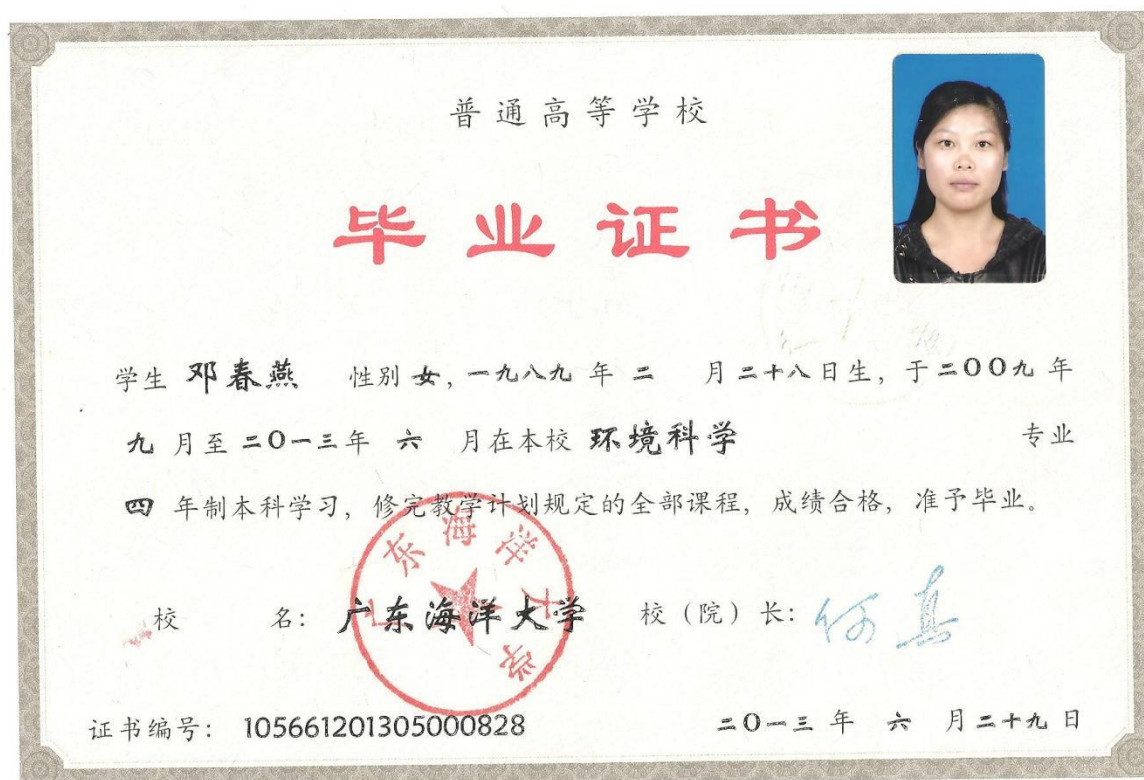 普通高等学校
毕业证书
学生 邓春燕 性别 女, 一九八九 年 二 月 二十八 日生, 于 二00九 年
九 月至 二0一三 年 六 月在本校 环境科学 专业
四 年制本科学习, 修完教学计划规定的全部课程, 成绩合格, 准予毕业。
广东海洋大学
校 名: 广东海洋大学 校 (院) 长: 何真
证书编号: 105661201305000828 二0一三 年 六 月 二十九 日